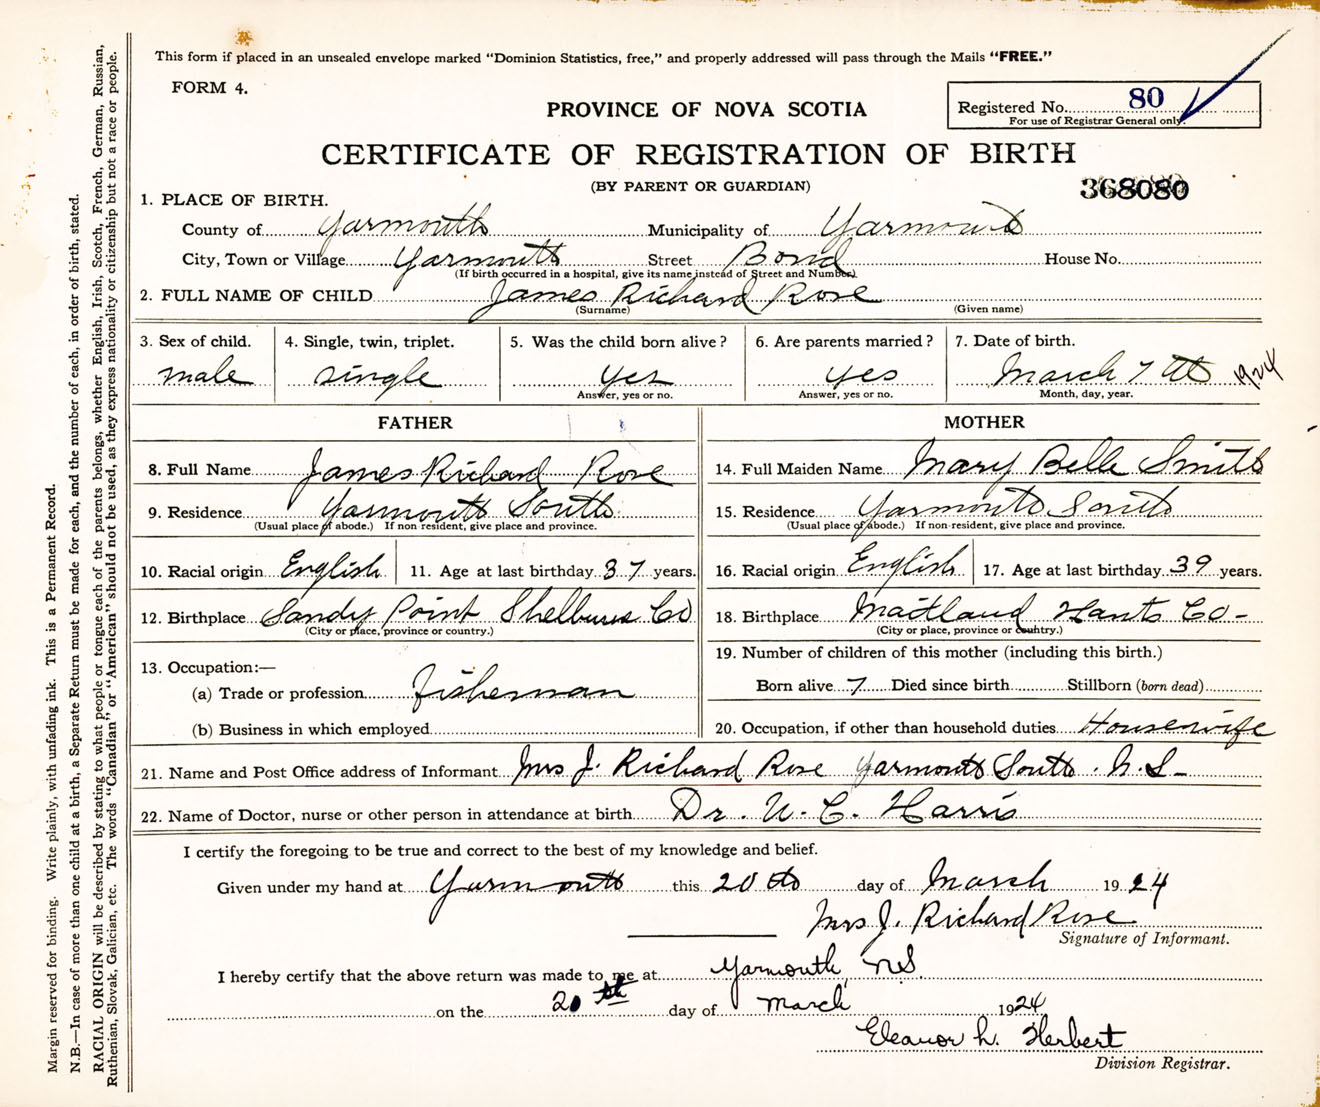 This form if placed in an unsealed envelope marked “Dominion Statistics, free,” and properly addressed will pass through the Mails “FREE.”
FORM 4.
Registered No. 80
For use of Registrar General only.
PROVINCE OF NOVA SCOTIA
CERTIFICATE OF REGISTRATION OF BIRTH
(BY PARENT OR GUARDIAN)
368080
1. PLACE OF BIRTH.
County of Yarmouth Municipality of Yarmouth
City, Town or Village Yarmouth Street Bond House No.
(If birth occurred in a hospital, give its name instead of Street and Number)
2. FULL NAME OF CHILD James Richard Rose
(Surname) (Given name)
3. Sex of child. 4. Single, twin, triplet. 5. Was the child born alive? 6. Are parents married? 7. Date of birth.
male single yes yes March 7th 1924
Answer, yes or no. Answer, yes or no. Month, day, year.
FATHER MOTHER
8. Full Name James Richard Rose 14. Full Maiden Name Mary Belle Smith
9. Residence Yarmouth South 15. Residence Yarmouth South
(Usual place of abode.) If non-resident, give place and province. (Usual place of abode.) If non-resident, give place and province.
10. Racial origin English 11. Age at last birthday 37 years. 16. Racial origin English 17. Age at last birthday 39 years.
12. Birthplace Sandy Point Shelburne Co 18. Birthplace Maitland Hants Co-
(City or place, province or country.) (City or place, province or country.)
13. Occupation:— 19. Number of children of this mother (including this birth.)
(a) Trade or profession fisherman Born alive 7 Died since birth Stillborn (born dead)
(b) Business in which employed 20. Occupation, if other than household duties Housewife
21. Name and Post Office address of Informant Mrs J. Richard Rose Yarmouth South. N.S-
22. Name of Doctor, nurse or other person in attendance at birth Dr. W. C. Harris
I certify the foregoing to be true and correct to the best of my knowledge and belief.
Given under my hand at Yarmouth this 20th day of March 1924
Mrs J. Richard Rose
Signature of Informant.
I hereby certify that the above return was made to me at Yarmouth, N.S.
on the 20th day of March 1924
Eleanor L. Herbert
Division Registrar.
Margin reserved for binding. Write plainly, with unfading ink. This is a Permanent Record.
N.B.—In case of more than one child at a birth, a Separate Return must be made for each, and the number of each, in order of birth, stated.
RACIAL ORIGIN will be described by stating to what people or tongue each of the parents belongs, whether English, Irish, Scotch, French, German, Russian,
Ruthenian, Slovak, Galician, etc. The words “Canadian” or “American” should not be used, as they express nationality or citizenship but not a race or people.